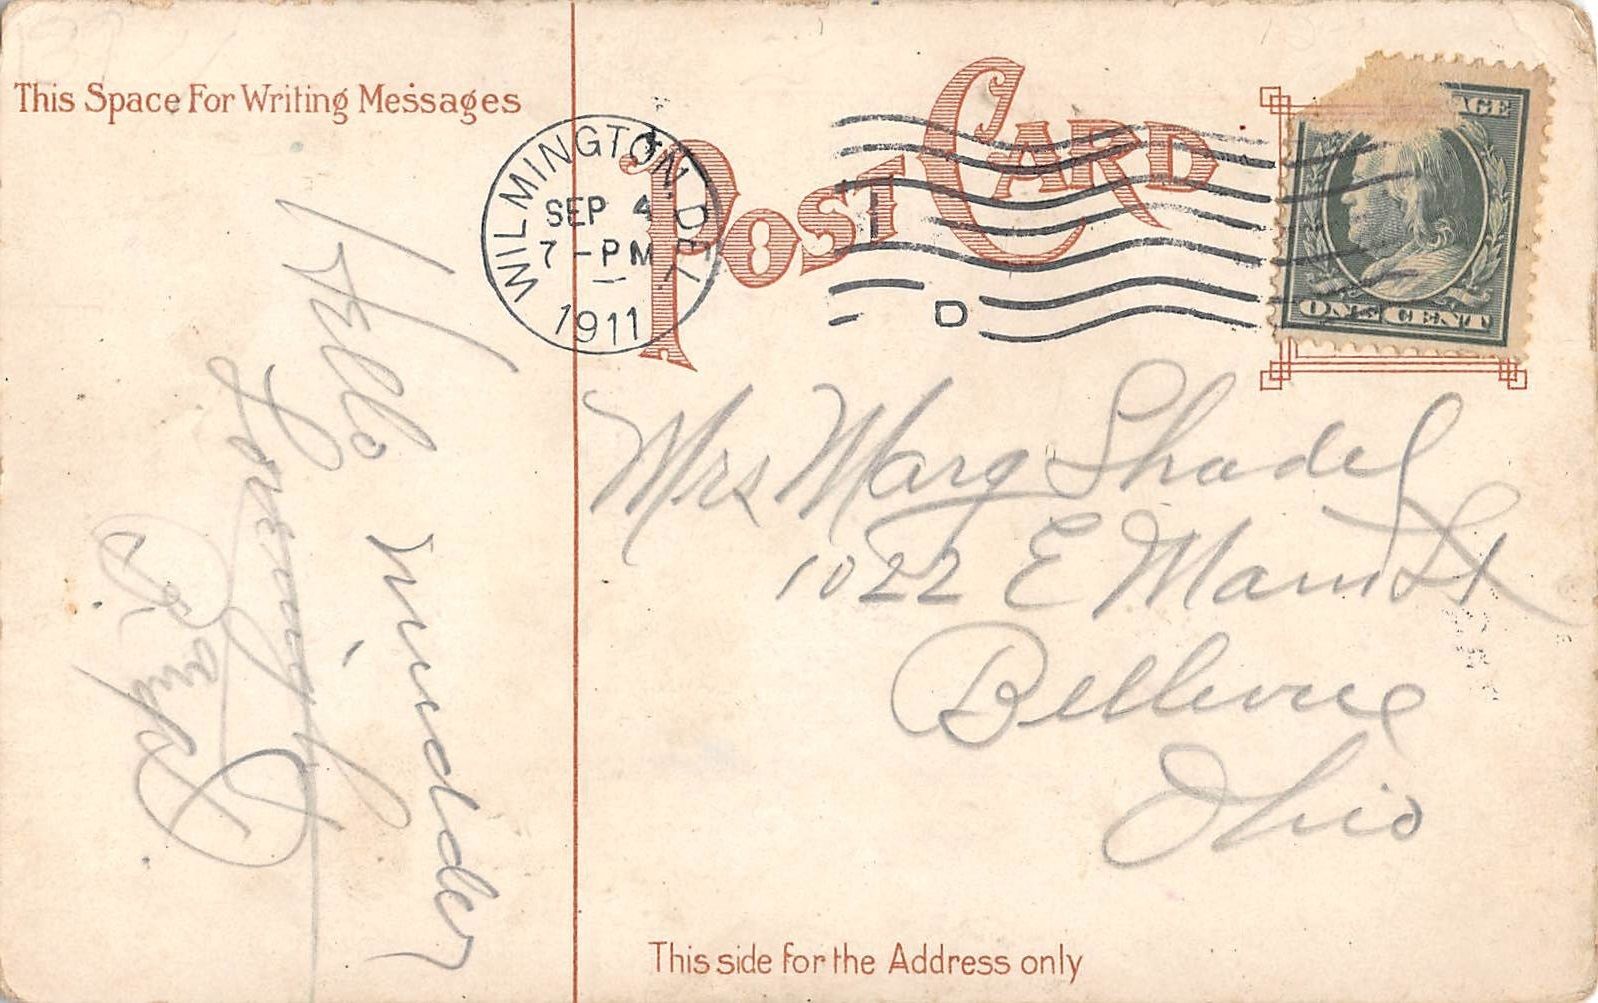 This Space For Writing Messages
POST CARD
WILMINGTON, DEL.
SEP 4
7-PM
1911
D
AGE
ONE CENT
Mrs Marg Shadel
1022 E Main St
Bellevue
Ohio
Hello
Lovingly
This side for the Address only